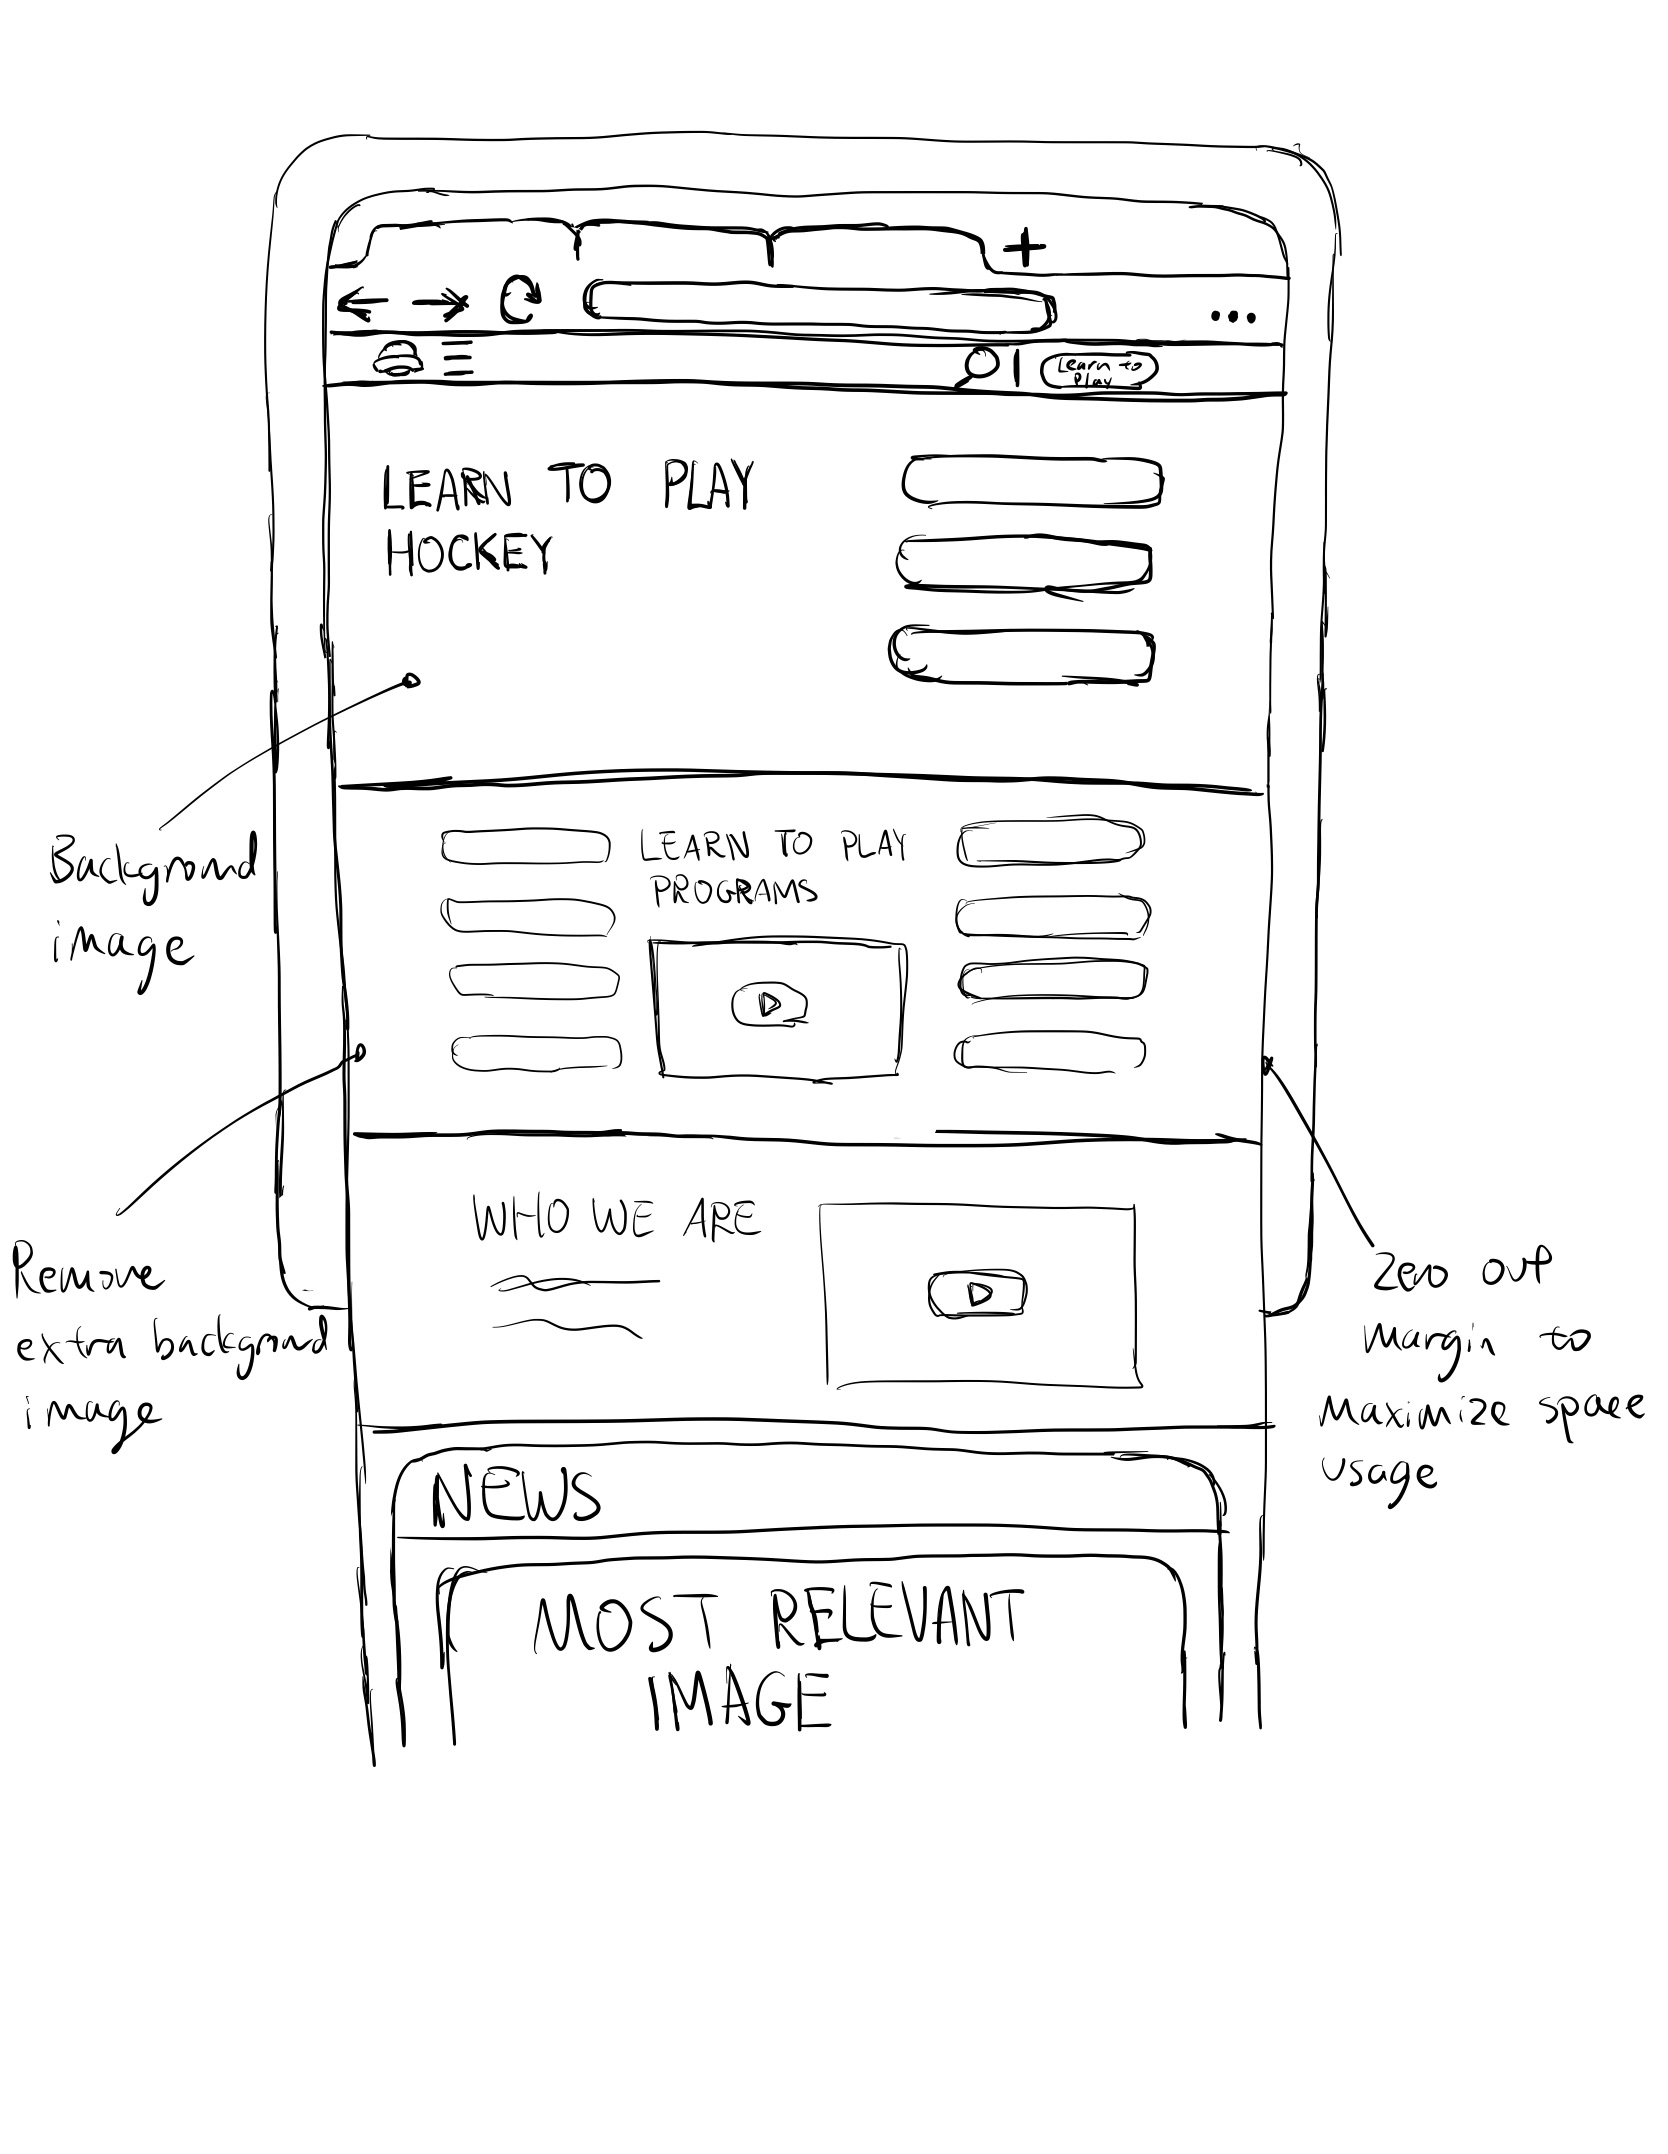 Learn to
Play
LEARN TO PLAY
HOCKEY
Background
image
LEARN TO PLAY
PROGRAMS
Remove
extra background
image
WHO WE ARE
Zero out
Margin to
Maximize space
usage
NEWS
MOST RELEVANT
IMAGE